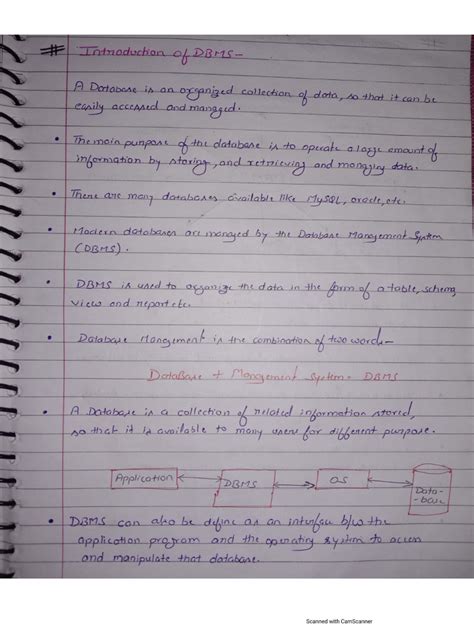 # Introduction of DBMS -
A Database is an organized collection of data, so that it can be
easily accessed and managed.
• The main purpose of the database is to operate a large amount of
information by storing, and retrieving and managing data.
• There are many databases available like MySQL, oracle, etc.
• Modern databases are managed by the Database Management System
(DBMS).
• DBMS is used to organize the data in the form of a table, schema,
view and report etc.
• Database Mangement is the combination of two words -
DataBase + Mangement System = DBMS
• A Database is a collection of related information stored,
so that it is available to many users for different purpose.
Application DBMS OS Data-
-base
• DBMS can also be define as an interface b/w the
application program and the operating system to access
and manipulate that database.
Scanned with CamScanner